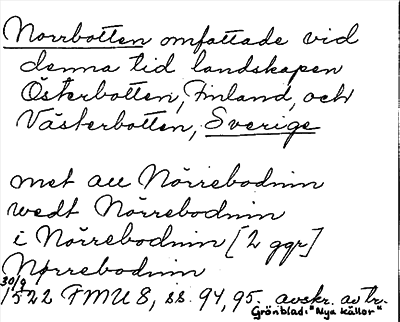 Norrbotten omfattade vid
denna tid landskapen
Österbotten, Finland, och
Västerbotten, Sverige
met all Nörrebodnin
wedt Nörrebodnin
i Nörrebodnin [2 ggr]
Nørrebodnin
30/9 1522 FMU 8, ss. 94, 95. avskr. av tr.
Grönblad: "Nya källor"